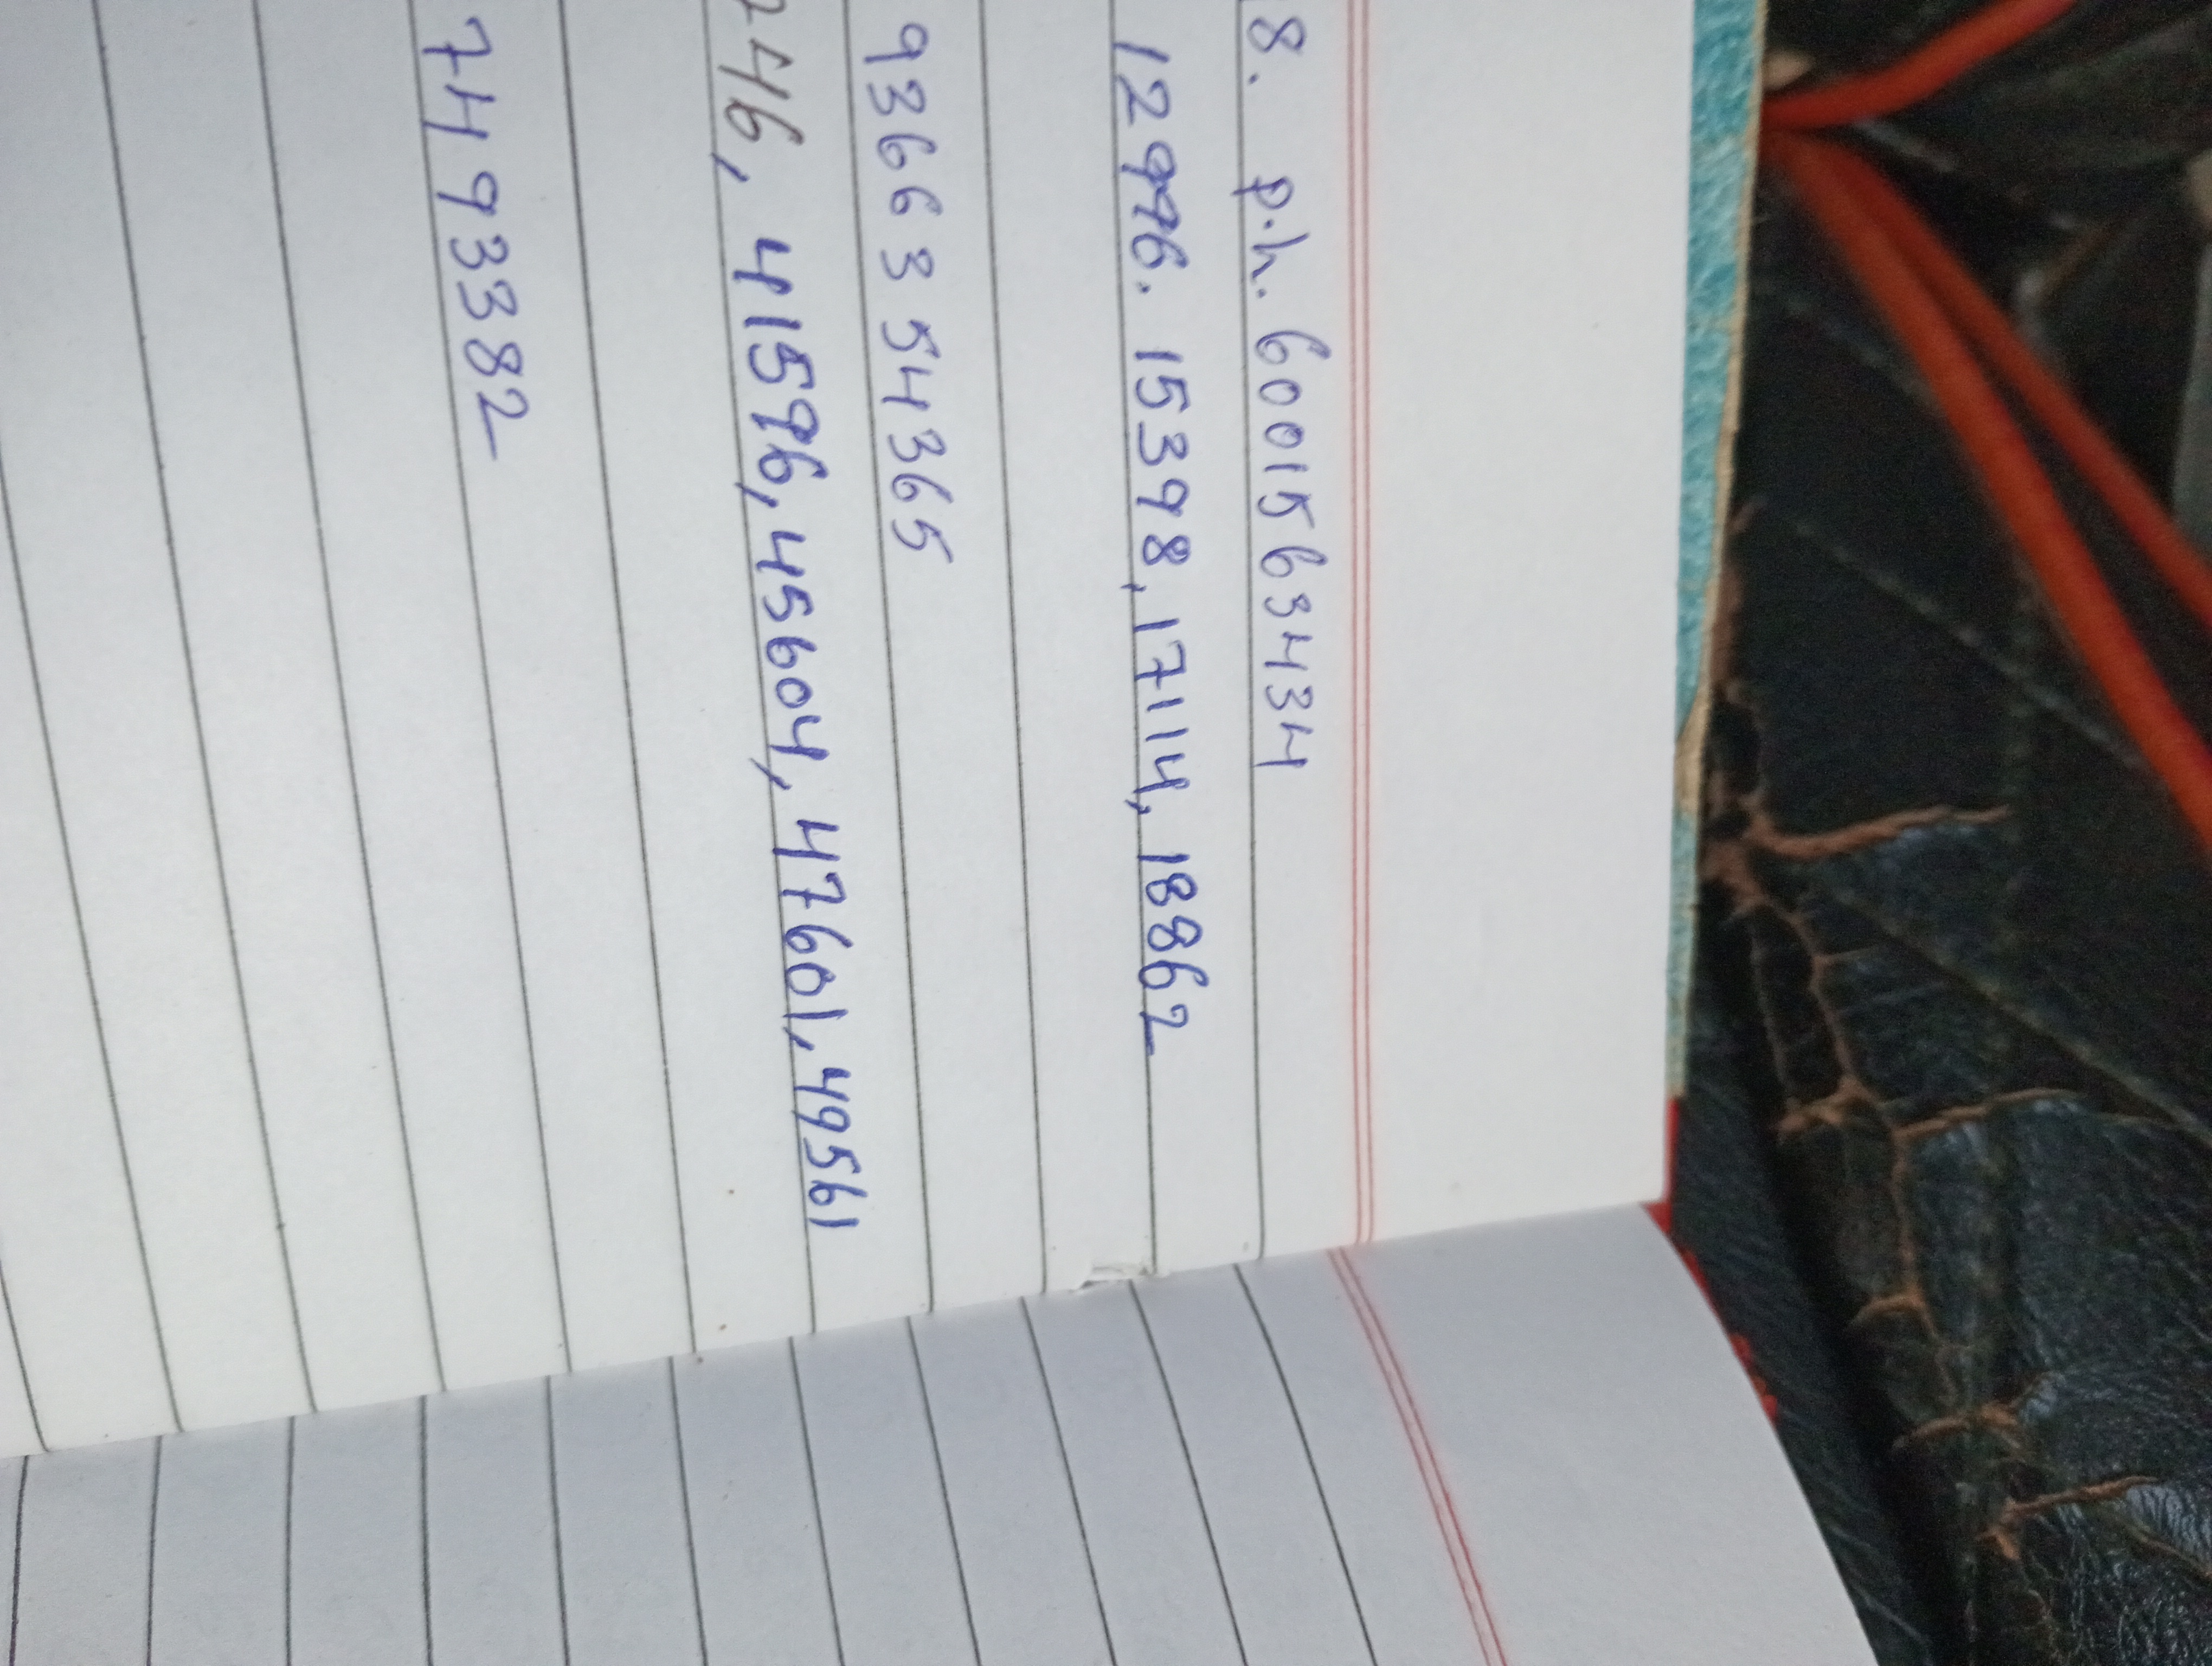 8. p.h. 6001563434
12996. 15398, 17114, 18862
9366354365
246, 41596, 45604, 47601, 49561
7H193382